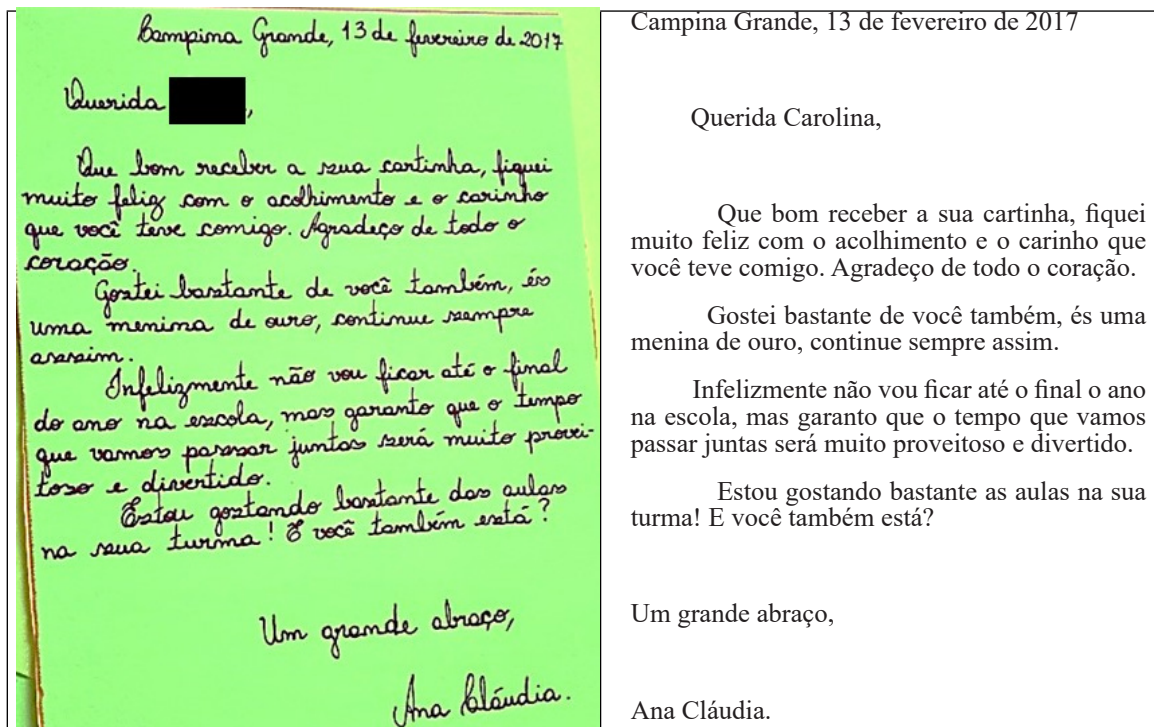 Campina Grande, 13 de fevereiro de 2017
Querida ,
Que bom receber a sua cartinha, fiquei
muito feliz com o acolhimento e o carinho
que você teve comigo. Agradeço de todo o
coração.
Gostei bastante de você também, és
uma menina de ouro, continue sempre
assim.
Infelizmente não vou ficar até o final
do ano na escola, mas garanto que o tempo
que vamos passar juntas será muito provei-
toso e divertido.
Estou gostando bastante das aulas
na sua turma! E você também está?
Um grande abraço,
Ana Cláudia.
Campina Grande, 13 de fevereiro de 2017
Querida Carolina,
Que bom receber a sua cartinha, fiquei
muito feliz com o acolhimento e o carinho que
você teve comigo. Agradeço de todo o coração.
Gostei bastante de você também, és uma
menina de ouro, continue sempre assim.
Infelizmente não vou ficar até o final o ano
na escola, mas garanto que o tempo que vamos
passar juntas será muito proveitoso e divertido.
Estou gostando bastante as aulas na sua
turma! E você também está?
Um grande abraço,
Ana Cláudia.